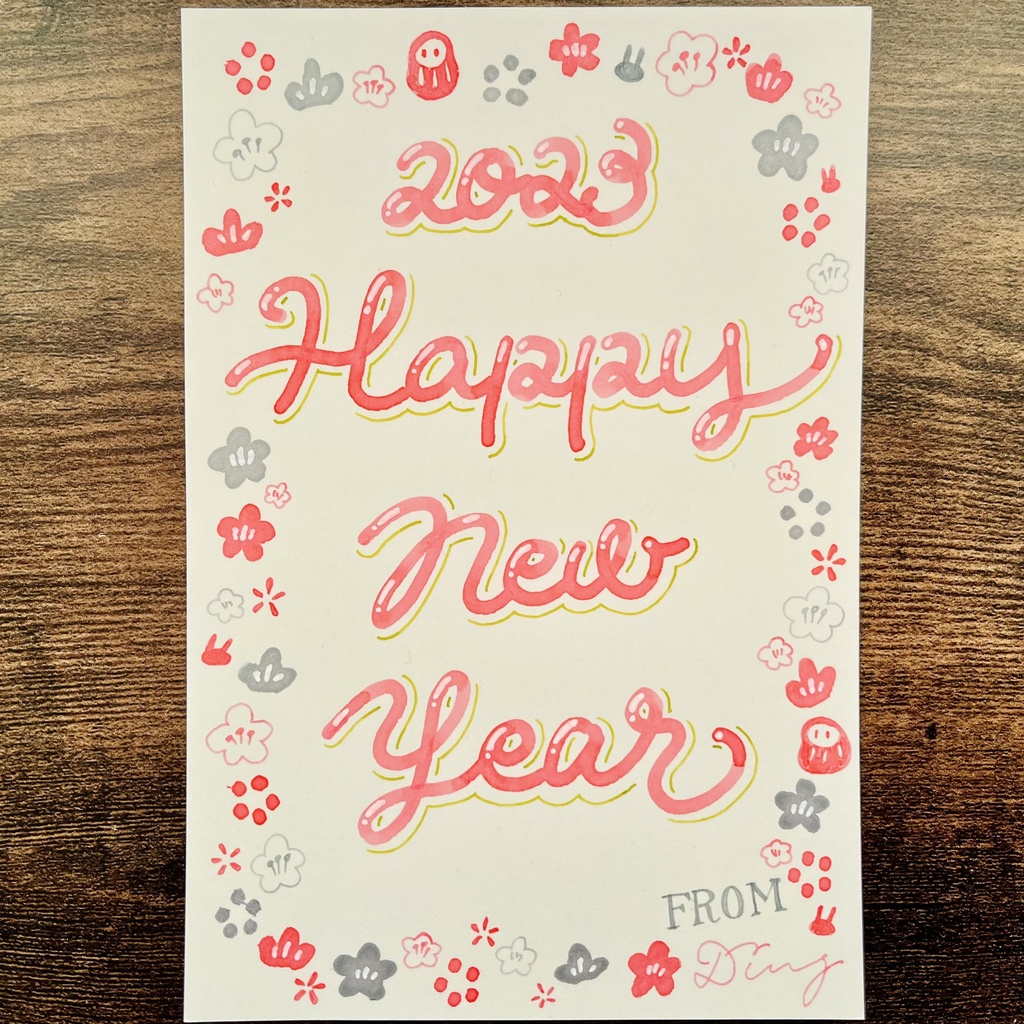 2023
Happy
New
Year
FROM
Ding